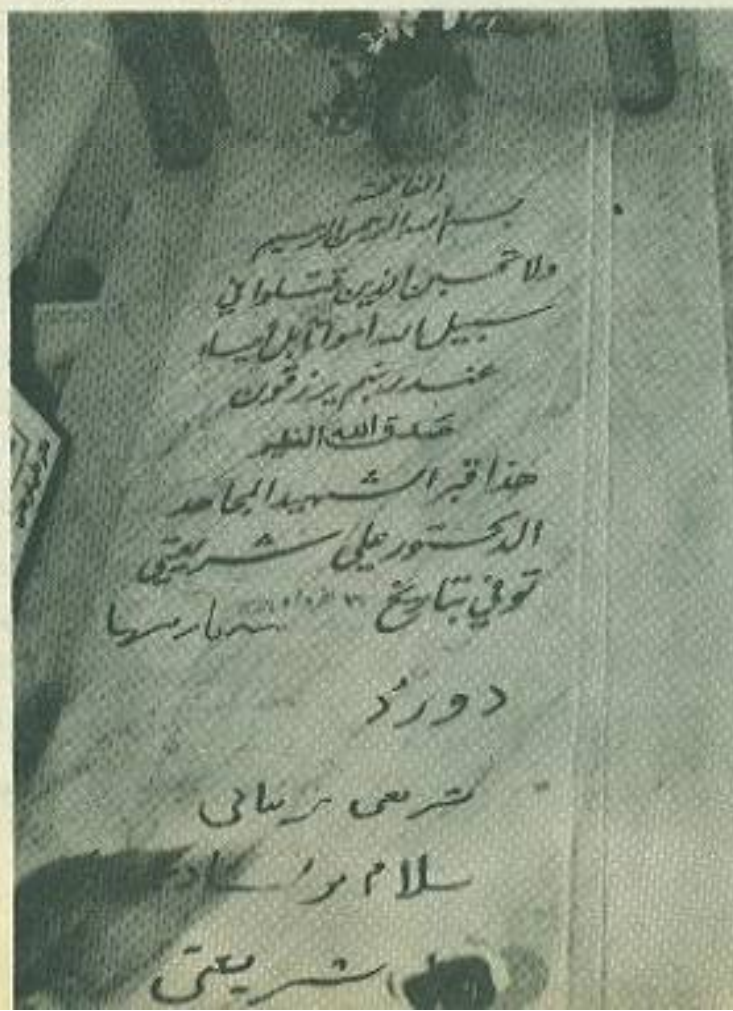 الفاتحة
بسم الله الرحمن الرحيم
ولا تحسبن الذين قتلوا في
سبيل الله امواتا بل احياء
عند ربهم يرزقون
صدق الله العظيم
هذا قبر الشهيد المجاهد
الدكتور علي شريعتي
توفي بتاريخ
درود
سلام بر
شريعتي